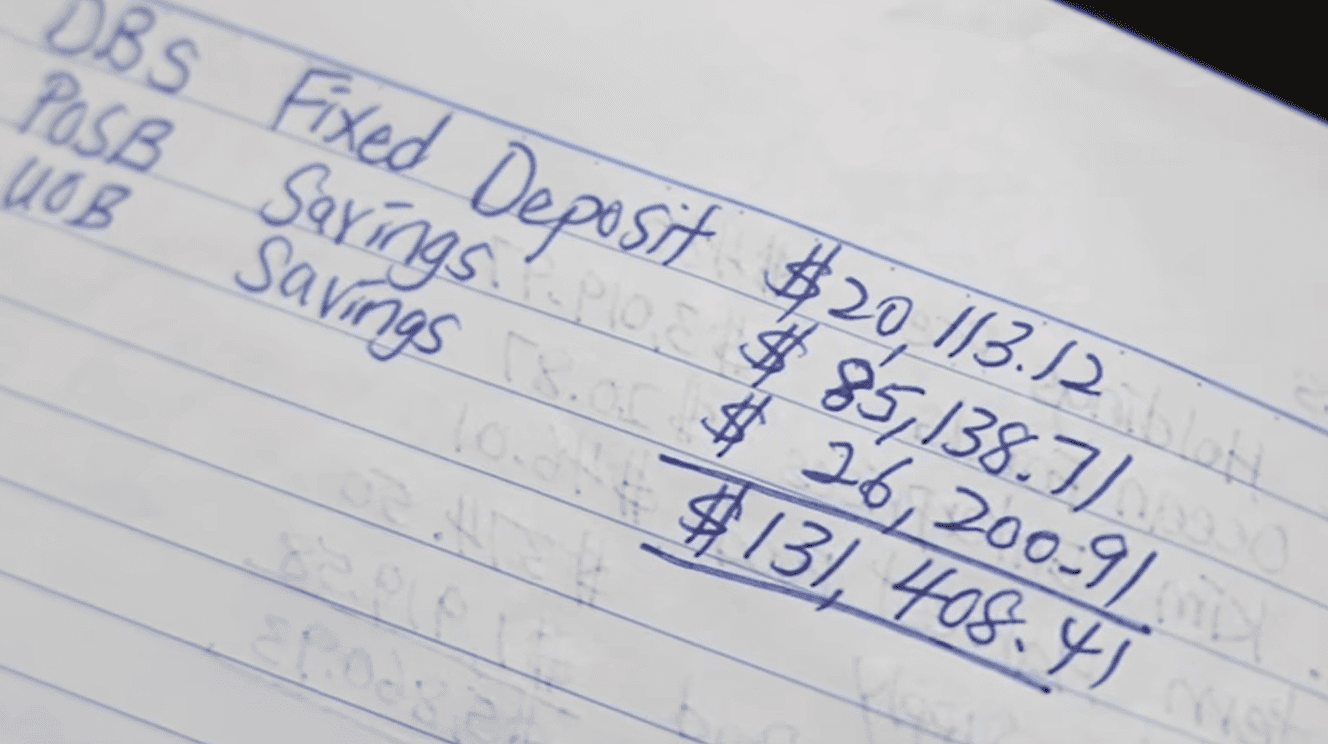 DBS Fixed Deposit $20,113.12
POSB Savings $ 85,138.71
UOB Savings $ 26,200.91
$131,408.41